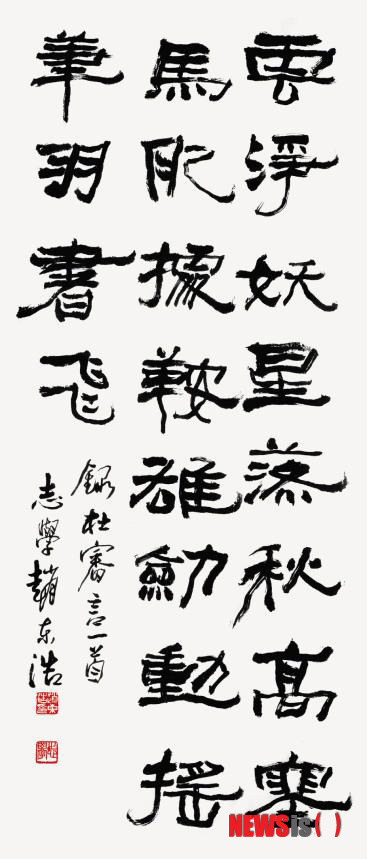 雲淨妖星落秋高塞
馬肥據鞍雄劍動搖
筆羽書飛
錄杜審言一首
志學趙東浩
NEWSis( )